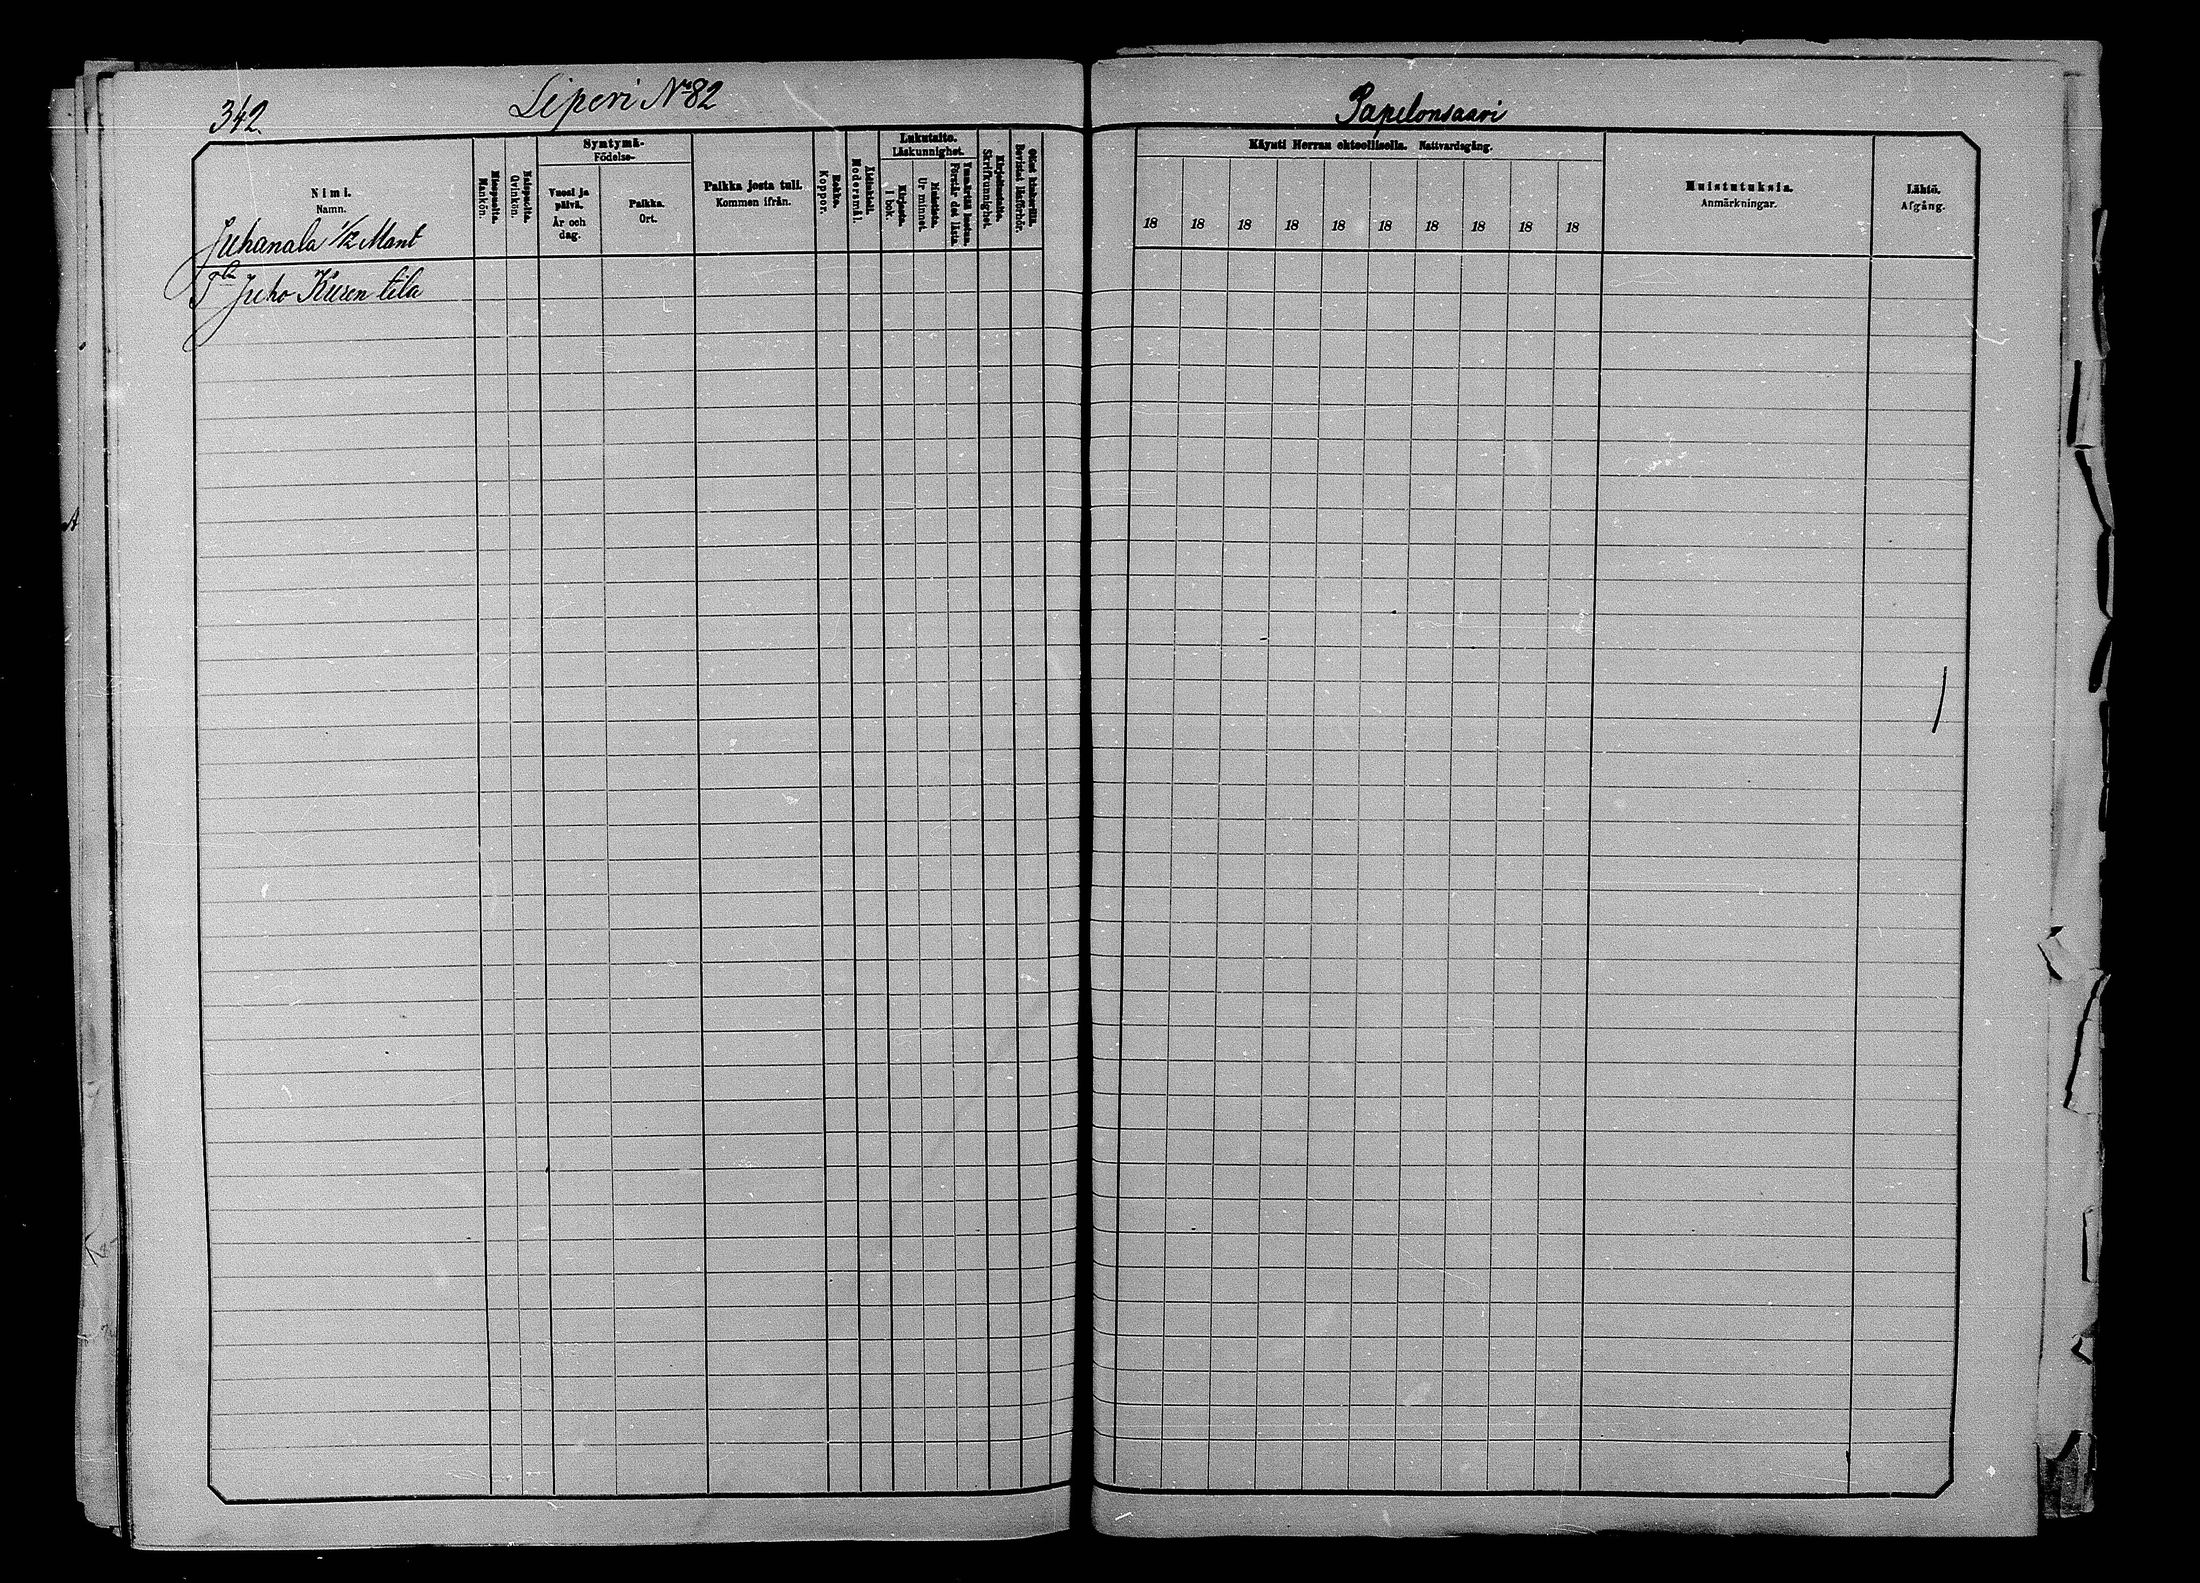 342.
Liperi No 82
Papelonsaari
Nimi.
Namn.
Miespuolia.
Mankön.
Naispuolia.
Qvinkön.
Syntymä-
Födelse-
Vuosi ja
päivä.
År och
dag.
Paikka.
Ort.
Paikka josta tuli.
Kommen ifrån.
Rokko.
Koppor.
Äidinkieli.
Modersmål.
Lukutaito.
Läskunnighet.
Kirjasta.
I bok.
Muistista.
Ur minnet.
Ymmärtää luetun.
Förstår det lästa.
Kirjoitustaito.
Skrifkunnighet.
Ollut kinkerillä.
Bevistat läsförhör.
Käynti Herran ehtoollisella. Nattvardsgång.
18 18 18 18 18 18 18 18 18 18
Muistutuksia.
Anmärkningar.
Lähtö.
Afgång.
Juhanala 1/12 Mant
Juho Kusen tila